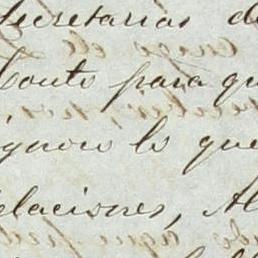 Secretarias de
Conte para qu
ignoro lo que
elaciones, Al